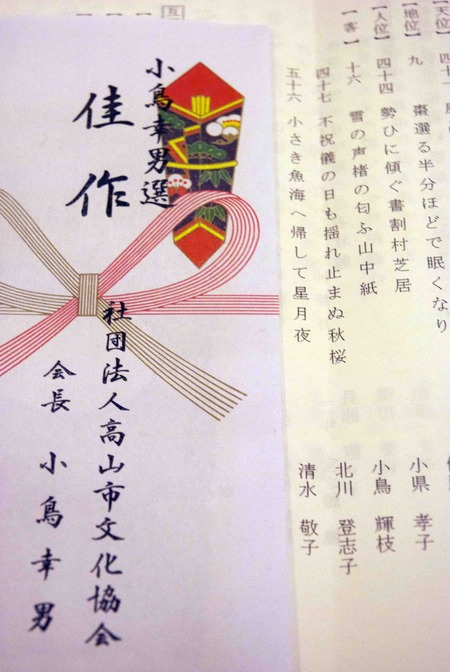 【地位】 九 棗選る半分ほどで眠くなり
【人位】 四十四 勢ひに傾ぐ書割村芝居 小県 孝子
【客】 十六 雪の声楮の匂ふ山中紙 小鳥 輝枝
四十七 不祝儀の日も揺れ止まぬ秋桜 北川 登志子
五十六 小さき魚海へ帰して星月夜 清水 敬子
小鳥幸男選
佳作
社団法人高山市文化協会
会長 小鳥幸男